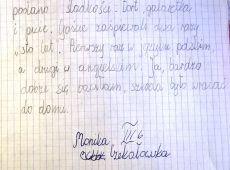 podano słodkości - tort, galaretka
i picie. Goście zaśpiewali dwa razy
"sto lat". Pierwszy raz w języku polskim,
a drugi w angielskim. Ja, bardzo
dobrze się bawiłam, szkoda było wracać
do domu.
Monika III 6